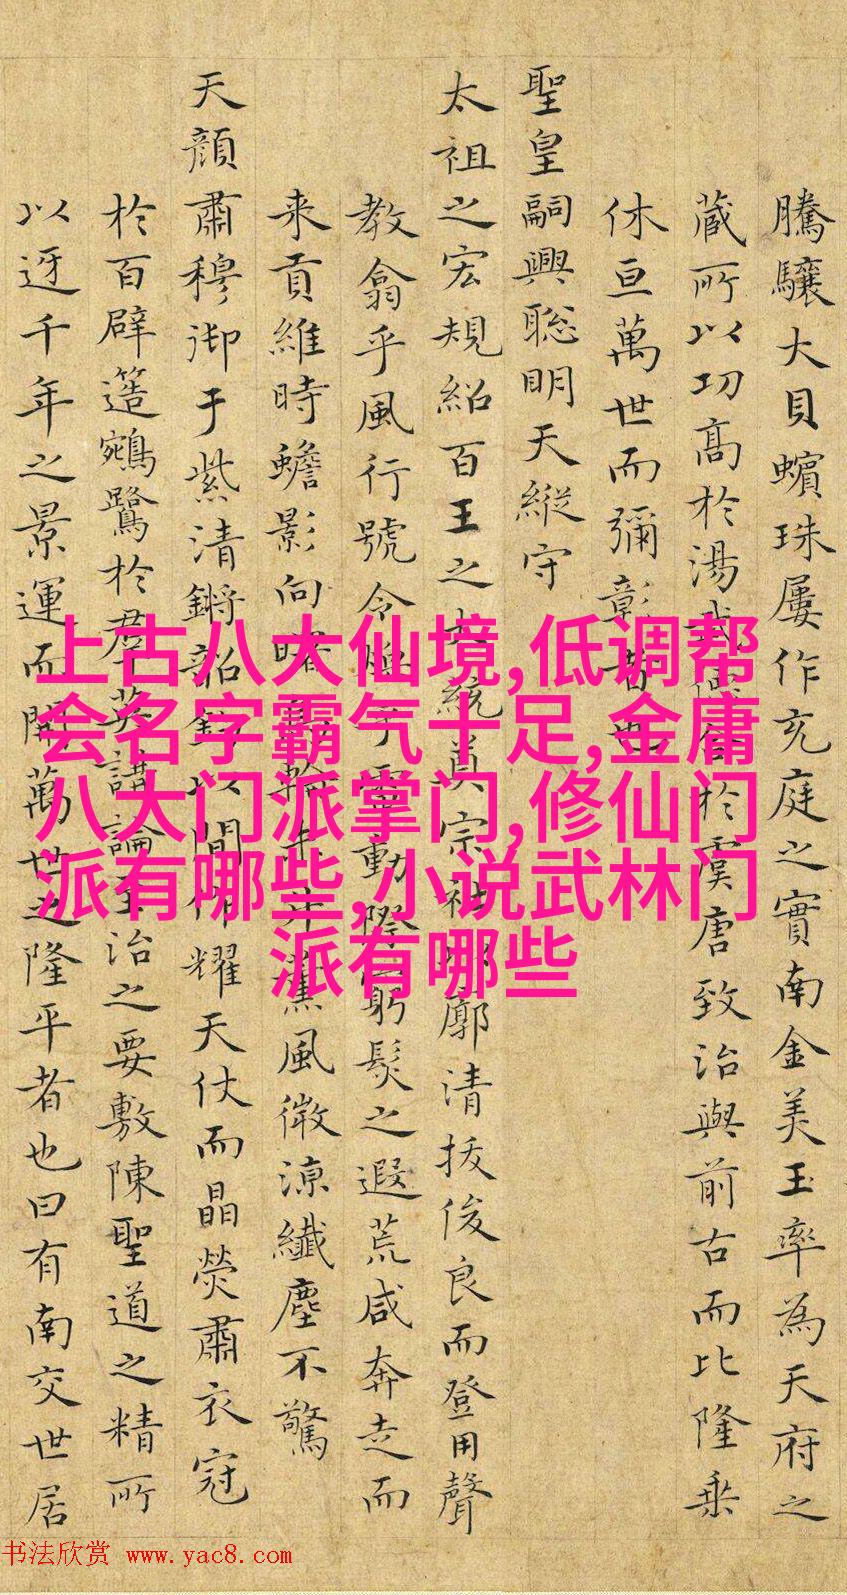 騰驤大貝蠙珠屢作充庭之實南金美玉率為天府之
蔵所以功髙於湯武於虞唐致治與前古而比隆乗
休亘萬世而彌彰也
聖皇嗣興聡明天縱守
太祖之宏規紹百王之大統奠宗社廓清拔俊良而登用聲
教翕乎風行號令乎雷動際窮髮之遐荒咸奔走而
来貢維時蟾影向曙輪升薰風微涼纖塵不驚
天顔肅穆御于紫清鏘韶鈞以間作耀天仗而晶熒肅衣冠
於百辟簉鵷鷺於群英講論至治之要敷陳聖道之精所
以迓千年之景運而開萬世之隆平者也曰有南交世居
上古八大仙境,低调帮
会名字霸气十足,金庸
八大门派掌门,修仙门
派有哪些,小说武林门
派有哪些
书法欣赏 www.yac8.com